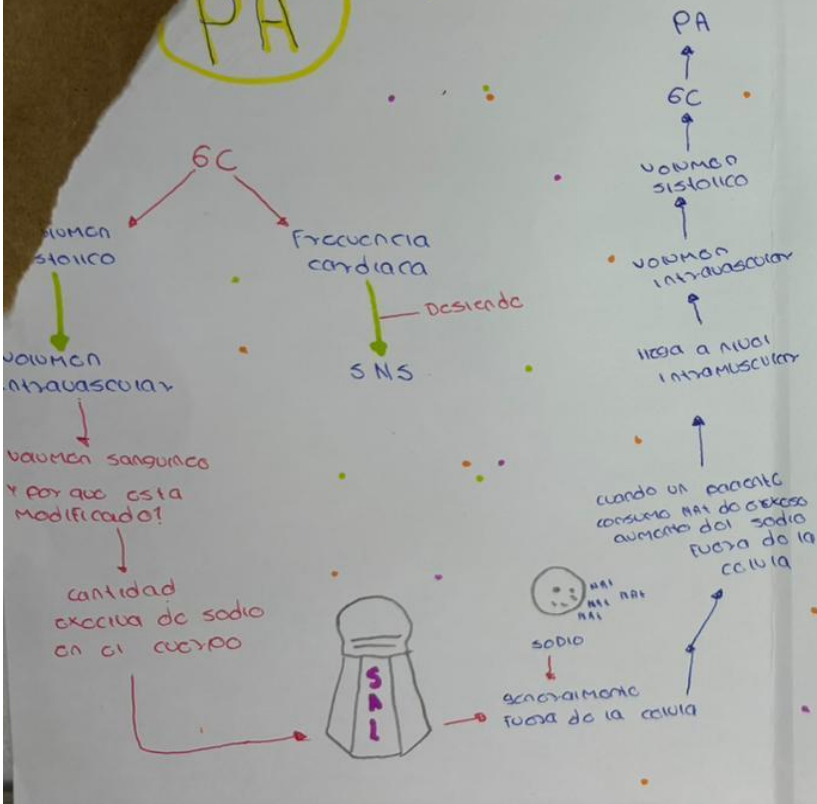 PA
GC
Frecuencia
cardiaca
Desiende
SNS
volumen
volumen sanguineo
y por que esta
modificado?
cantidad
execiva de sodio
en el cuerpo
SAL
NA+
NA+ NA+
NA+
SODIO
generalmente
fuera de la celula
cuando un paciente
consume NA+ de exkeso
aumento del sodio
fuera de la
celula
llega a nivel
intramuscular
volumen
intravascular
volumen
sistolico
GC
PA